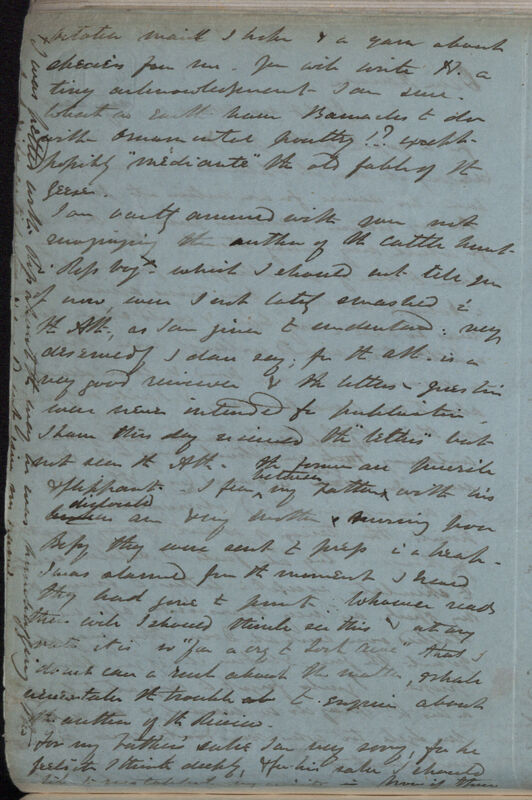 & a yarn about
species for me. You will write H. a
tiny acknowledgement I am sure.
What on earth have Barnacles to do
with ornamental poultry!? except
possibly "mediante" the old fable of the
geese.
I am vastly amused with you not
recognizing the author of the cattle hunt
which I should not tell you
of now were I not lately smashed in
the Ath, as I am given to understand: very
deservedly I dare say; for the Ath. is a
very good reviewer & the letters
were never intended for publication,
I have this day received the "letters" but
not seen the Ath. the former are puerile
& flippant. I fear between my father with his
disjointed and my mother & nursing poor
Bessy they were sent to press in a
I was alarmed from the moment I heard
they had gone to print. Whoever reads
them will I should think see this & at any
rate it is so "far a cry to Loch Awe" that I
do not care a about the matter, & shall
never take the trouble to enquire about
the author of the Review.
For my Father's sake I am very sorry, for he
feels it I think deeply, & for his sake I should